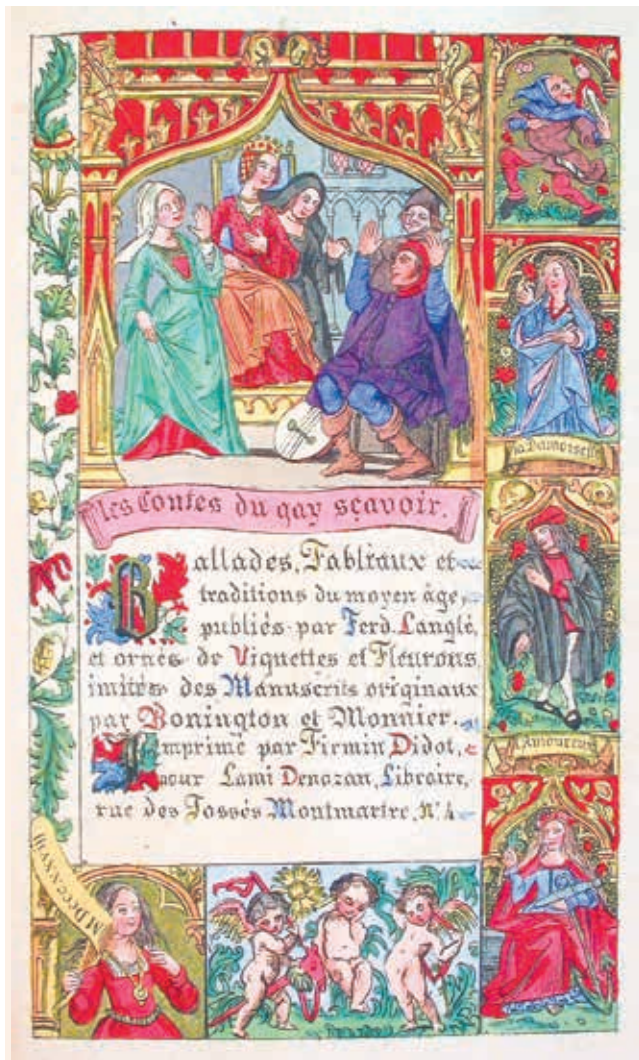 les Contes du gay sçavoir.
Ballades, Fabliaux et
traditions du moyen âge,
publiés par Ferd. Langlé,
et ornés de Vignettes et Fleurons,
imités des Manuscrits originaux
par Bonington et Monnier.
Imprimé par Firmin Didot,
pour Lami Denozan, Libraire,
rue des Fossés Montmartre, N.º 4
la Damoiselle
l'Amoureux